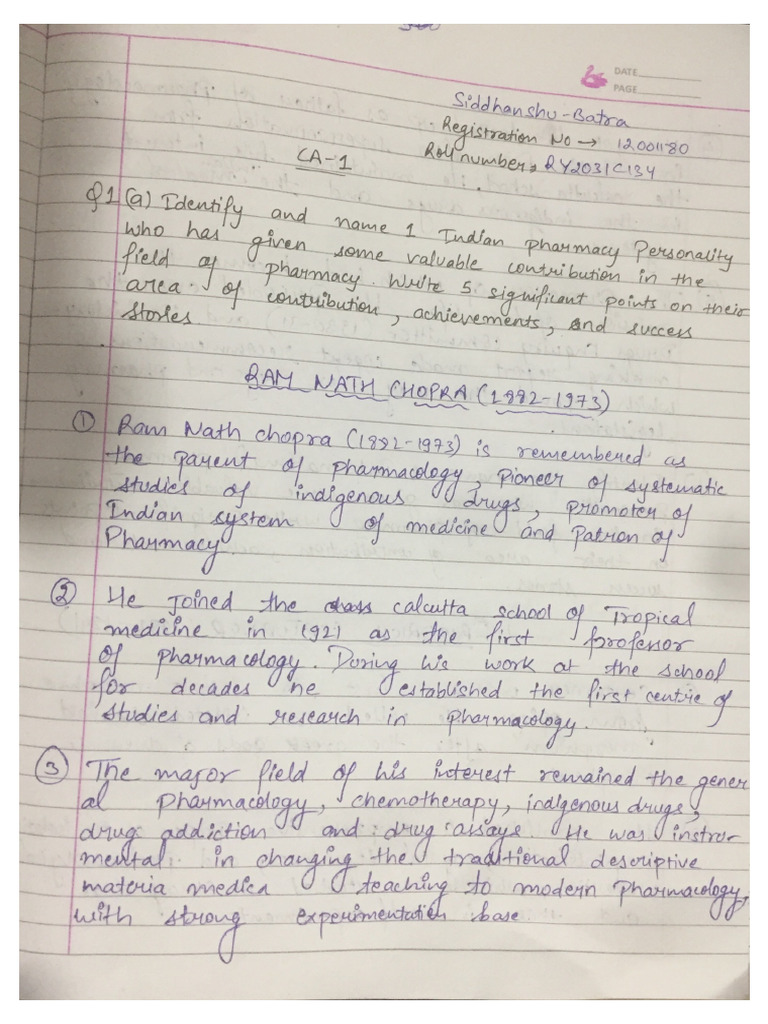 DATE
PAGE
Siddhanshu-Batra
Registration No → 12001180
Roll number → RY2031C134
CA-1
Q1 (a) Identify and name 1 Indian pharmacy Personality
who has given some valuable contribution in the
field of pharmacy. Write 5 significant points on their
area of contribution, achievements, and success
stories.
RAM NATH CHOPRA (1882-1973)
① Ram Nath chopra (1882-1973) is remembered as
the parent of pharmacology, Pioneer of systematic
studies of indigenous drugs, promoter of
Indian system of medicine and Patron of
Pharmacy.
② He joined the calcutta school of Tropical
medicine in 1921 as the first professor
of pharmacology. During his work at the school
for decades he established the first centre of
studies and research in pharmacology.
③ The major field of his interest remained the gener
al pharmacology, chemotherapy, indigenous drugs,
drug addiction and drug assays He was instru-
mental in changing the traditional descriptive
materia medica teaching to modern pharmacology,
with strong experimentation base